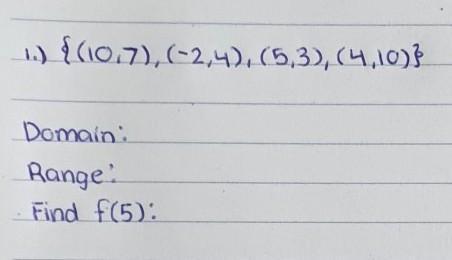 1.) {(10,7), (-2,4), (5,3), (4,10)}
Domain:
Range:
Find f(5):